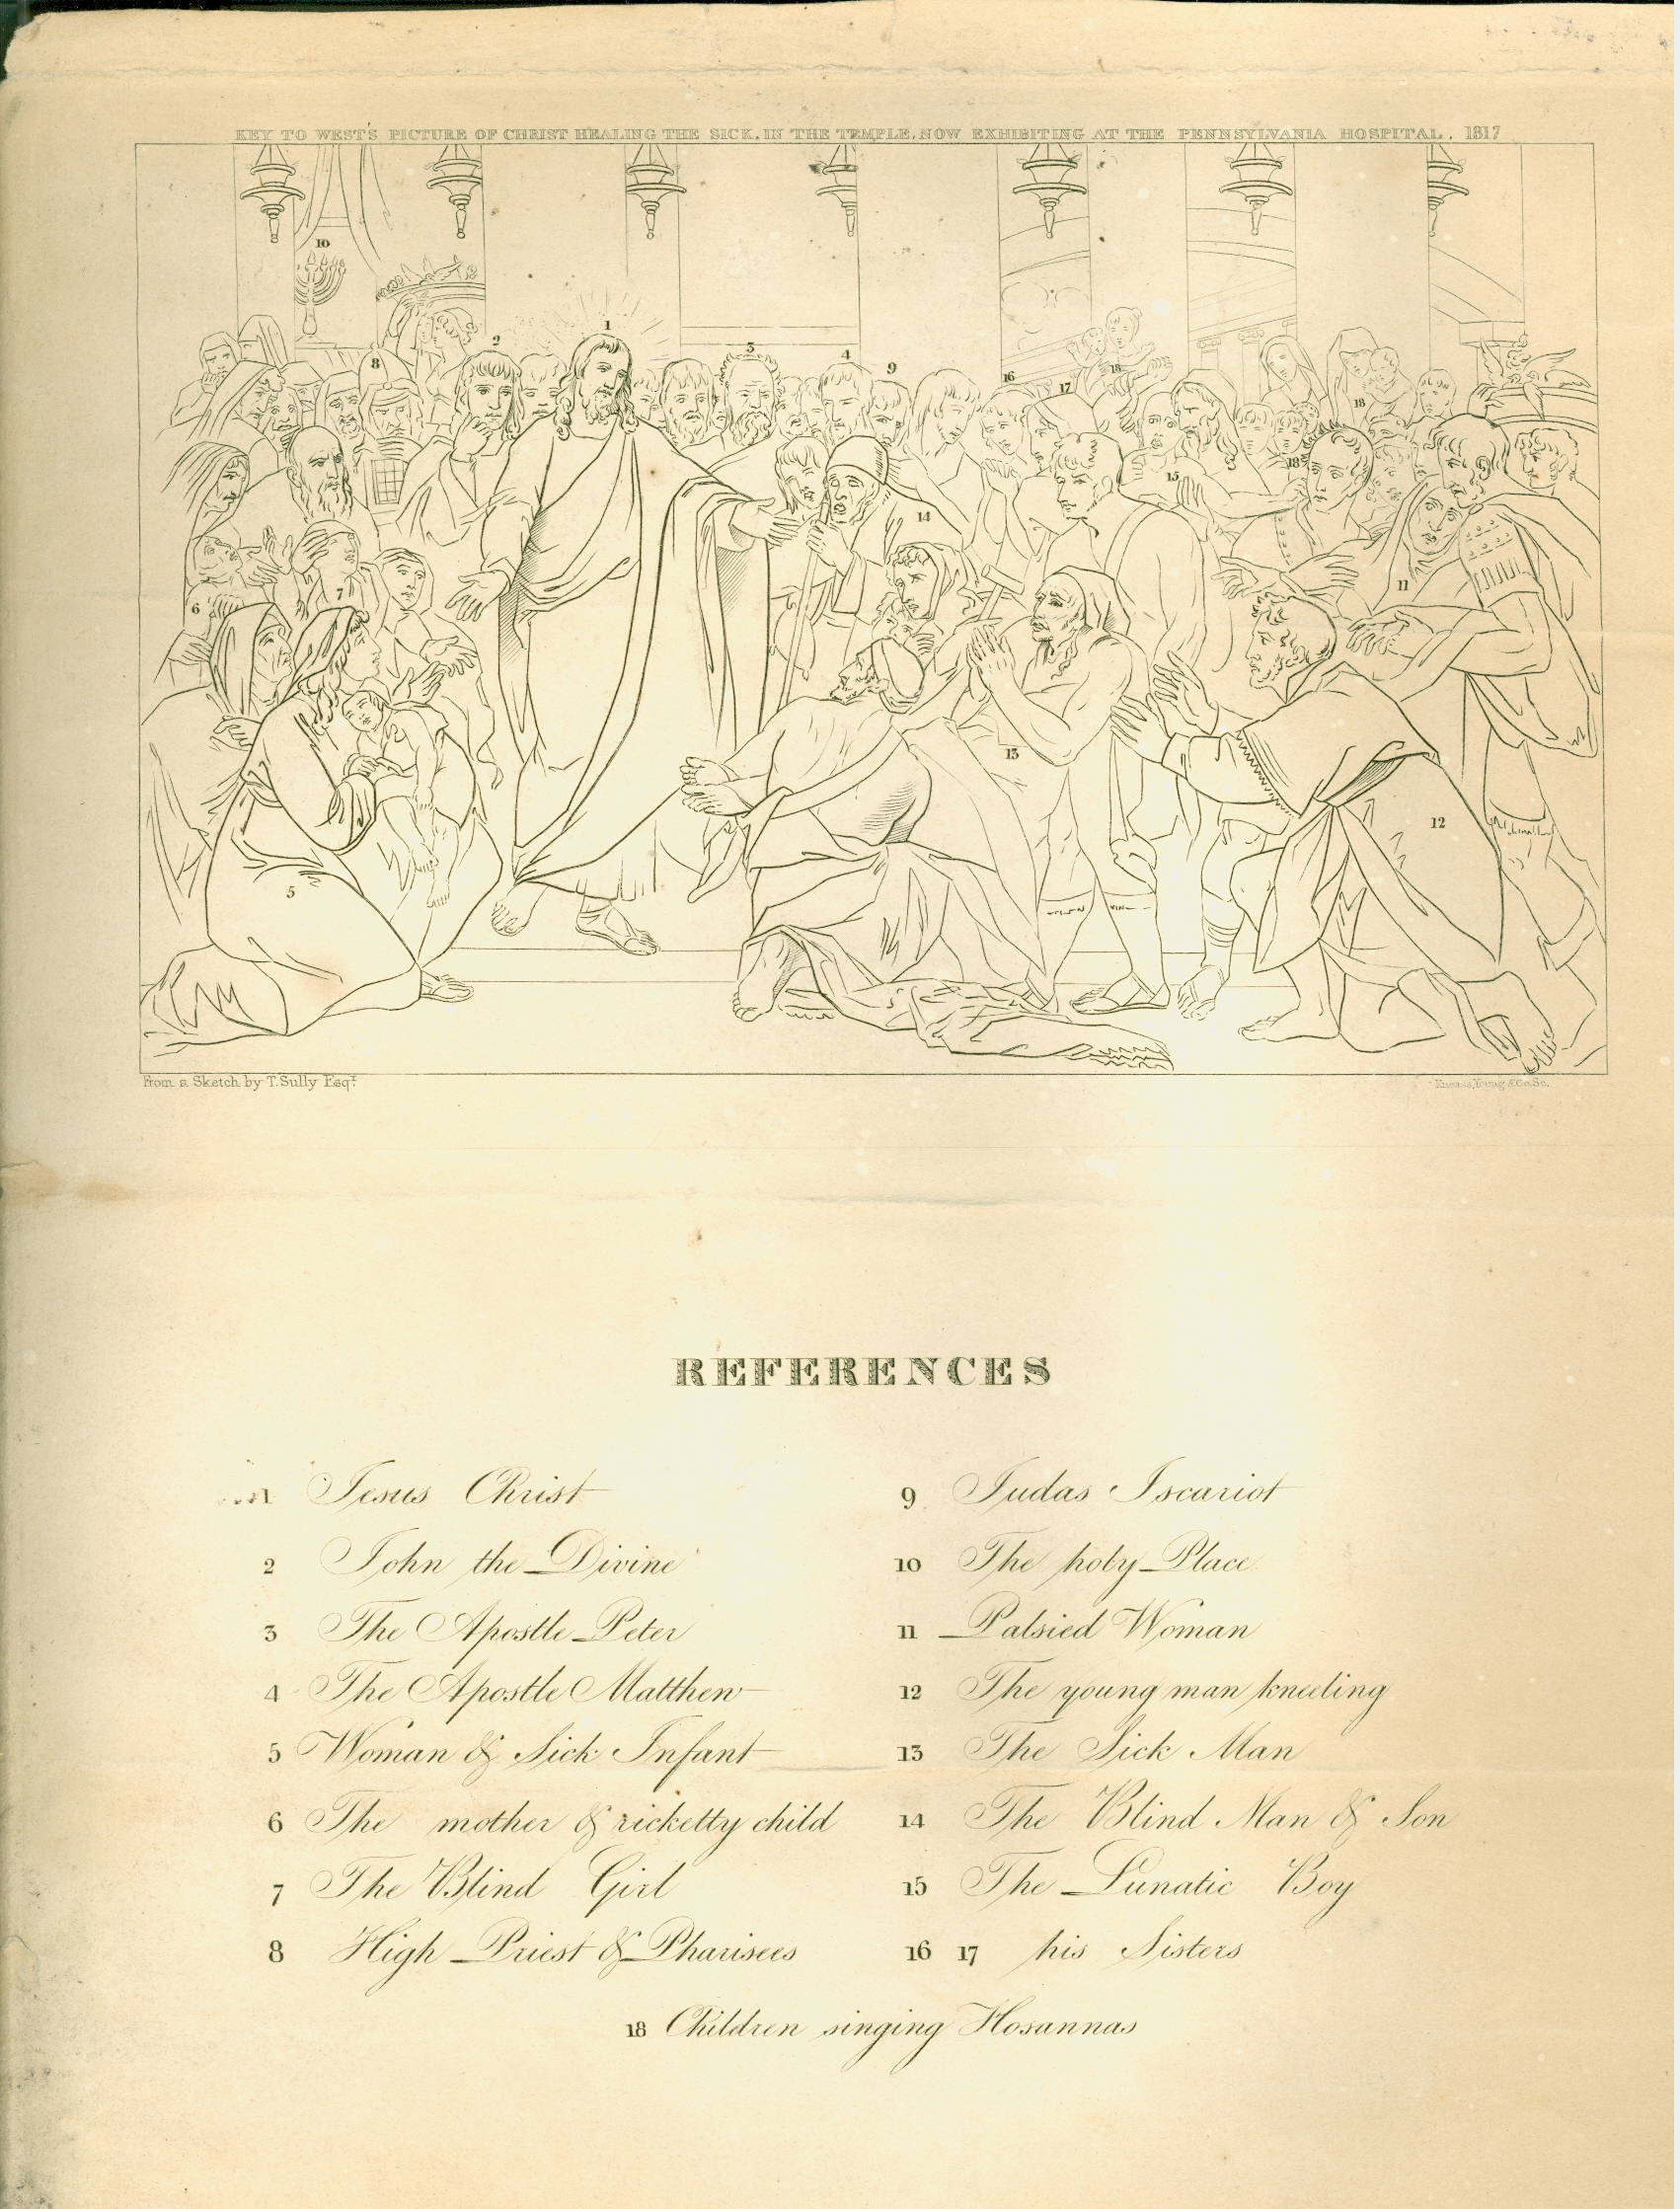 KEY TO WEST'S PICTURE OF CHRIST HEALING THE SICK, IN THE TEMPLE, NOW EXHIBITING AT THE PENNSYLVANIA HOSPITAL. 1817
10
1
2
3
4
8
9
16
17
18
18
18
15
14
11
6
7
13
12
5
From a Sketch by T. Sully Esqr.
Kneass, Young & Co. Sc.
REFERENCES
1 Jesus Christ
2 John the Divine
3 The Apostle Peter
4 The Apostle Matthew
5 Woman & Sick Infant
6 The mother & ricketty child
7 The Blind Girl
8 High Priest & Pharisees
9 Judas Iscariot
10 The holy Place
11 Palsied Woman
12 The young man kneeling
13 The Sick Man
14 The Blind Man & Son
15 The Lunatic Boy
16 17 his Sisters
18 Children singing Hosannas